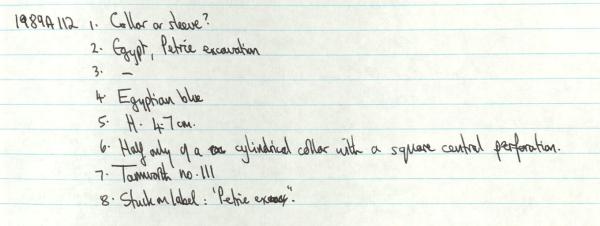 1989A112 1. Collar or sleeve?
2. Egypt, Petrie excavation
3. —
4. Egyptian blue
5. H. 4.7 cm.
6. Half only of a cylindrical collar with a square central perforation.
7. Tamworth no. 111
8. Stuck on label: 'Petrie excav".